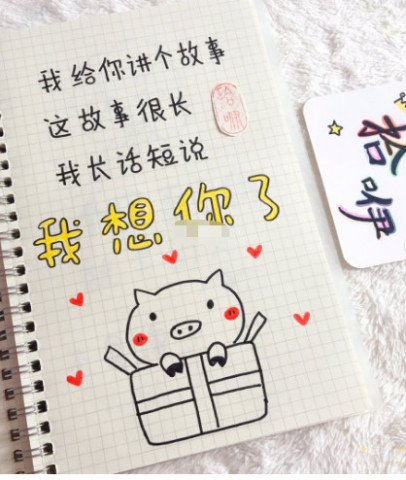 我给你讲个故事
这故事很长
我长话短说
我想你了
拾